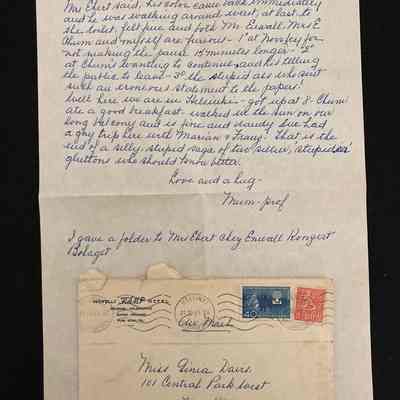 Mrs Ebert said, his color came back immediately
and he was walking around went, at last to
the toilet, felt fine and both Mr. Enwall Mrs E
Chum and myself are furious - 1st at Novofey for
not making the pause 15 minutes longer - 2nd
at Chum's wanting to continue, and his telling
the public to leave - 3rd the stupid ass who sent
such an erroneous statement to the papers!
Well here we are in Helsinki - got up at 8 - Chum
ate a good breakfast, walked in the sun on our
long balcony and is fine and steady. We had
a gay trip here with Marian & Franz! That is the
end of a silly, stupid saga of two sillier, stupider
gluttons who should know better.
Love and a hug -
Mum-prof
I gave a folder to Mrs Ebert Chez Enwall Konsert
Bolaget
HOTELLI HOTEL
HELSINKI
40
Air Mail
Miss Ginia Davis.
101 Central Park West